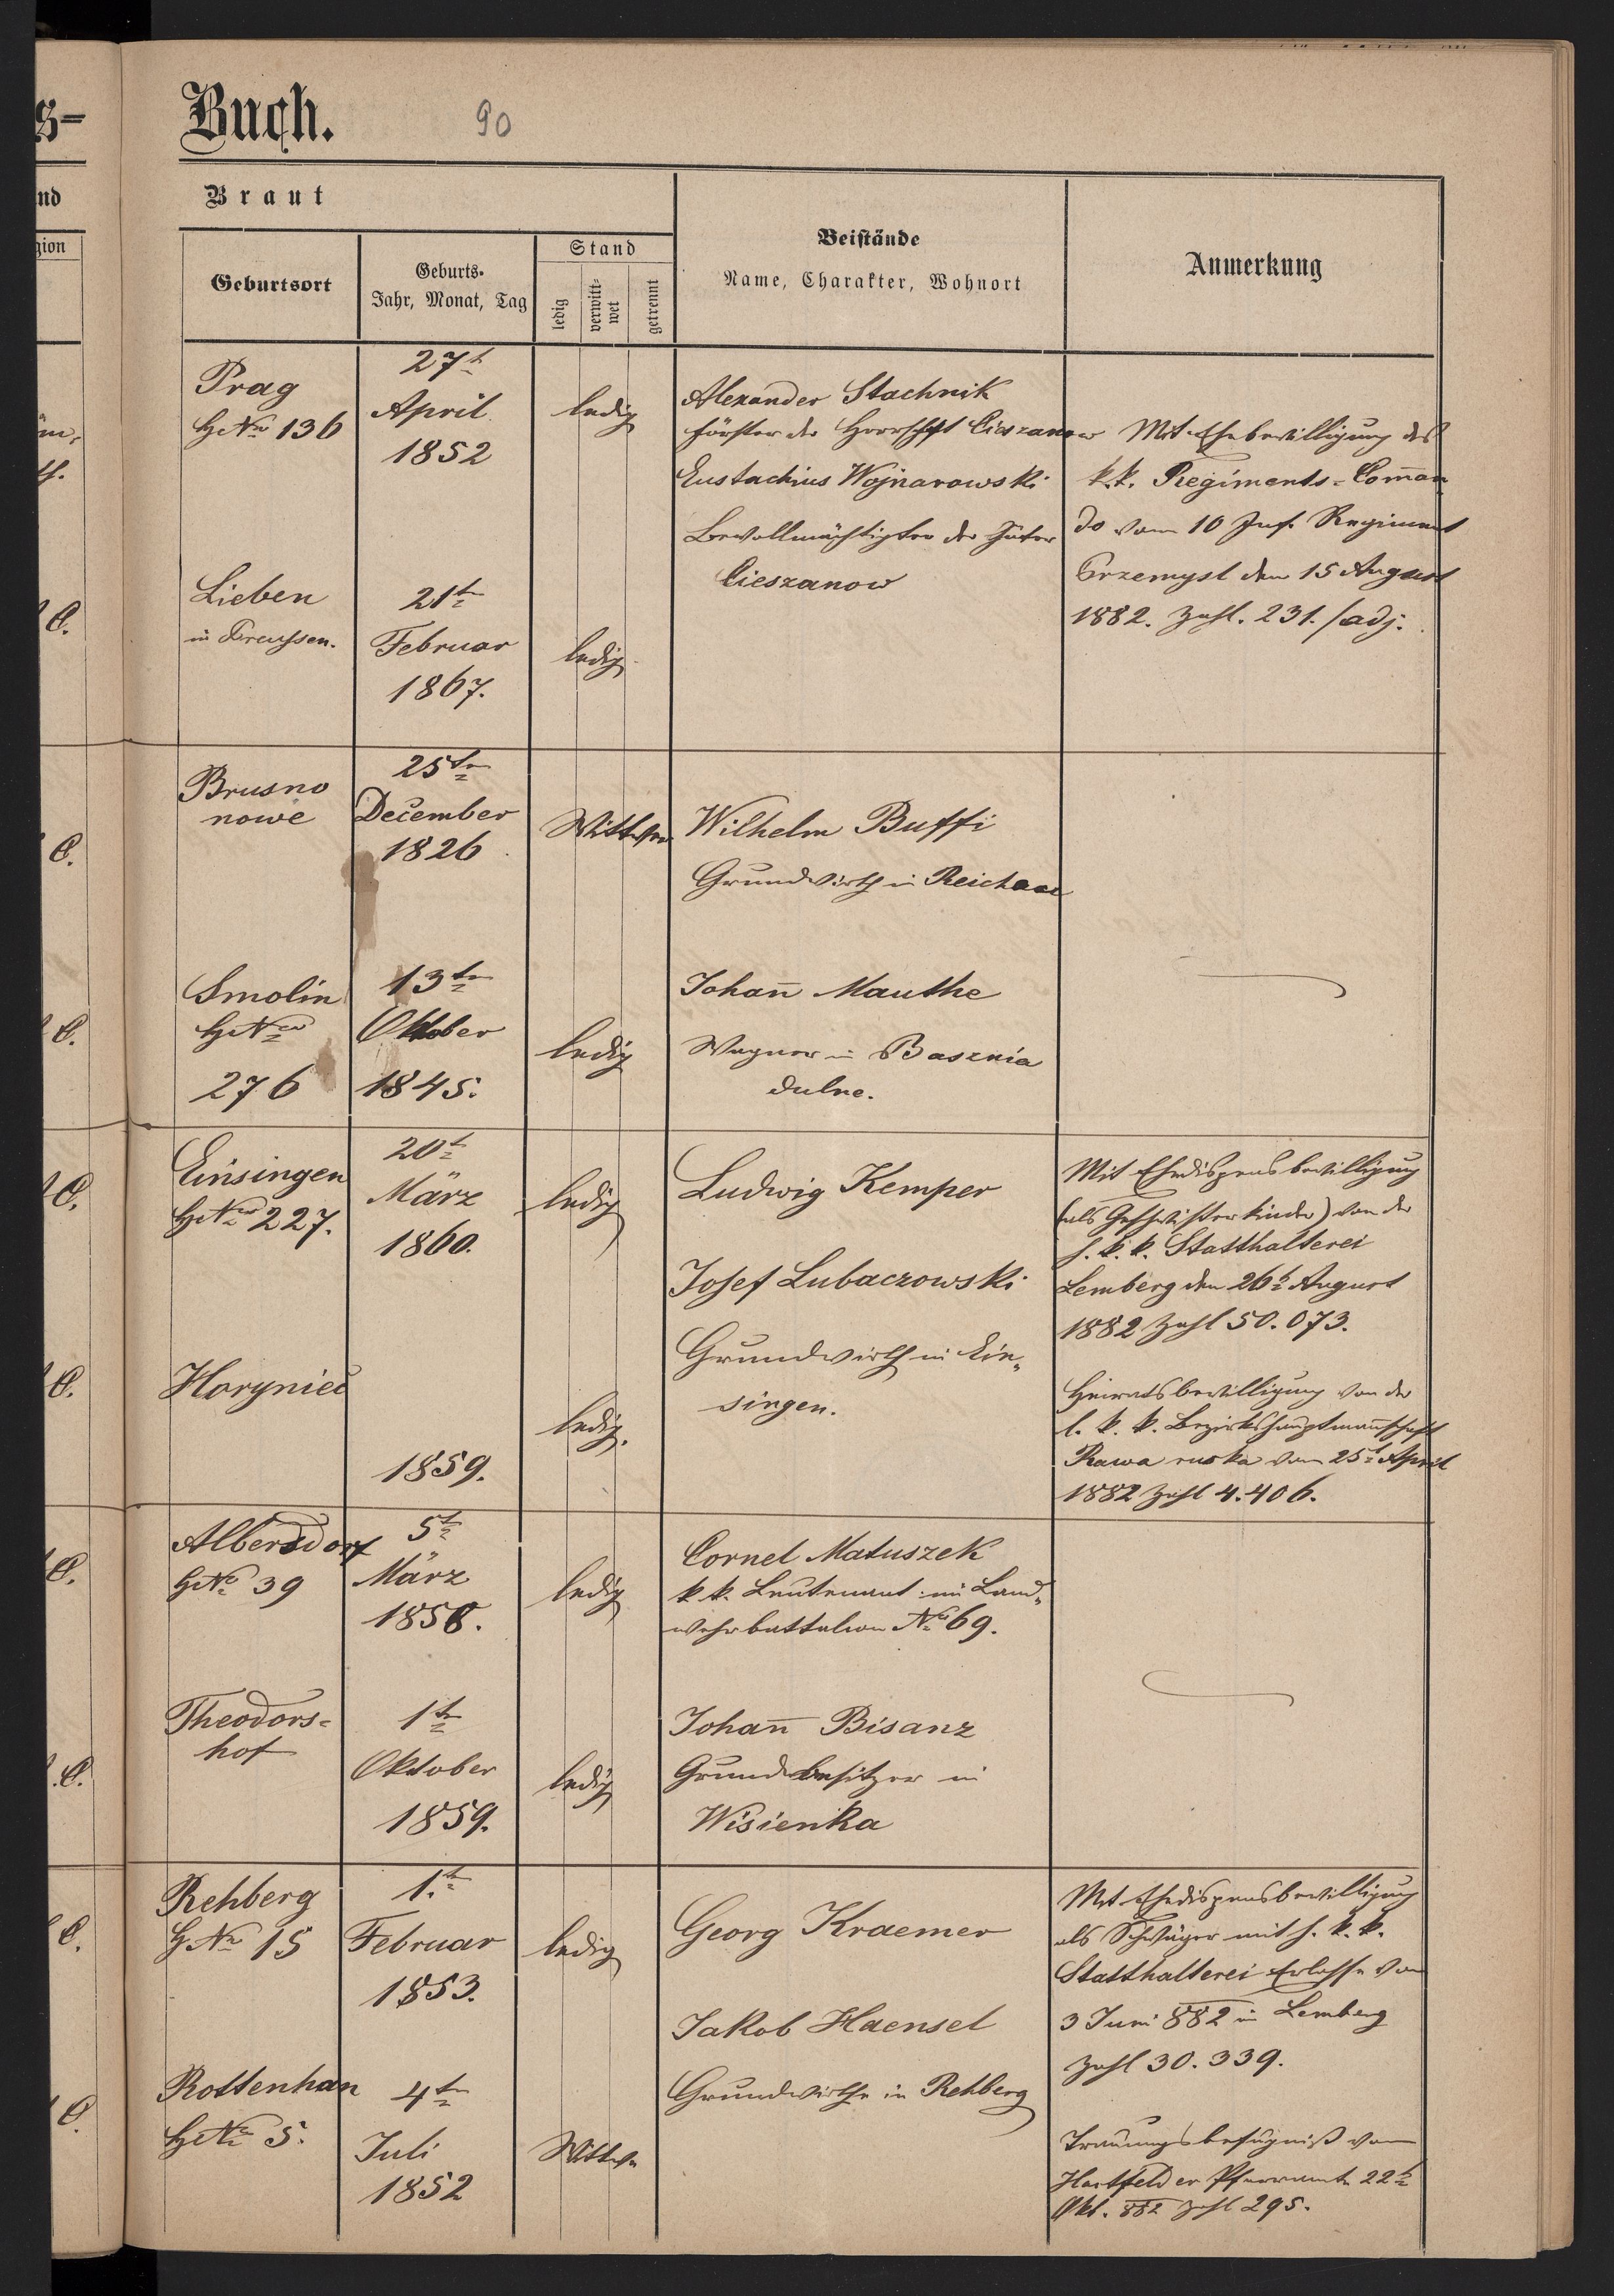 Buch.
90
Braut
Geburtsort
Geburts-
Jahr, Monat, Tag
Stand
ledig
verwitt-
wet
getrennt
Beistände
Name, Charakter, Wohnort
Anmerkung
s-
nd
gion
Prag
HNro 136
27t
April
1852
ledig
Alexander Stachnik
Förster der Herrschft Cieszanow
Eustachius Wojnarowski
Bevollmächtigter der Güter
Cieszanow
Mit Ehebewilligung des
k.k. Regiments-Com̄an
do vom 10 Inf. Regiment
Przemysl den 15 August
1882. Zahl. 231./adj.
Lieben
in Preussen.
21tn
Februar
1867.
ledig
Brusno
nowe
25tn
December
1826
Wittwe
Wilhelm Buffi
Grundwirth in Reichau
Smolin
HNro
276
13tn
Oktober
1845.
ledig
Johan̄ Mauthe
Wagner in Basznia
dulne.
Einsingen
HNro 227.
20t
März
1860.
ledig
Ludwig Kemper
Josef Lubaczowski
Grundwirth in Ein„
singen.
Mit Ehedispensbewilligung
(als Geschwisterkinder) von der
h. k. k. Statthalterei
Lemberg den 26t August
1882 Zahl 50.073.
Horyniec
1859.
ledig.
Heiratsbewilligung von der
l. k. k. Bezirkshauptman̄schaft
Rawa ruska vom 25t April
1882 Zahl 4.406.
Albersdorf
HNo 39
5tn
März
1858.
ledig
Cornel Matuszek
k k. Leutenant im Land„
wehrbattalion No 69.
Theodors-
hof
1tn
Oktober
1859.
ledig
Johan̄ Bisanz
Grundbesitzer in
Wisienka
Rehberg
HNro 15
1.tn
Februar
1853.
ledig
Georg Kraemer
Jakob Haensel
Grundwirthe in Rehberg
Mit Ehedispensbewilligung
als Schwäger mit h. k. k.
Statthalterei Erlasse vom
3 Juni 882 in Lemberg
Zahl 30.339.
Rottenhan
HNro 5.
4tn
Juli
1852
Wittwe
Trauungsbefugniß vom
Hartfelder Pfarramte 22t
Okt. 882 Zahl 295.